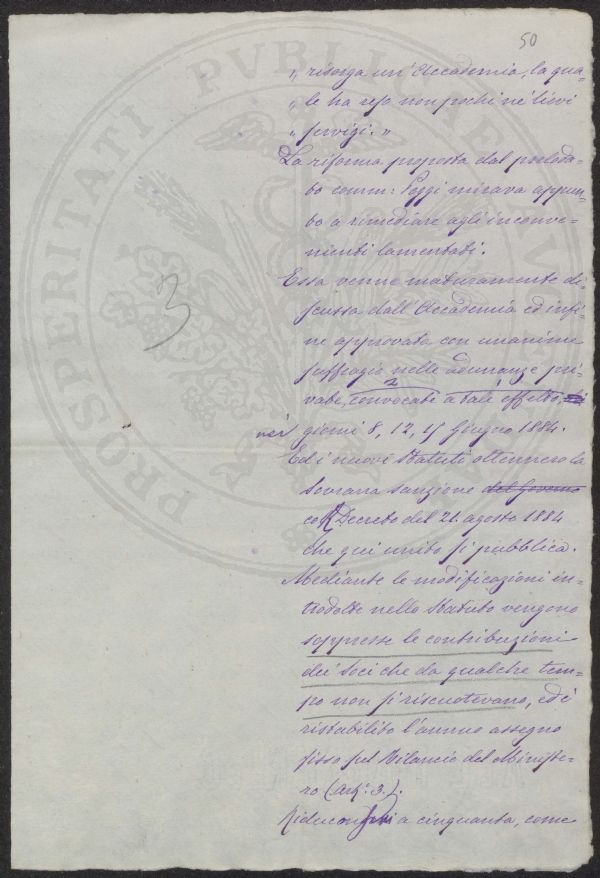 50
„ risorga un'Accademia, la qua=
„ le ha reso non pochi nè lievi
„ servigi. „
La riforma proposta dal prelodа=
to comm: Poggi mirava appun=
to a rimediare agli inconve=
nienti lamentati.
Essa venne maturamente di=
scussa dall'Accademia ed infi=
ne approvata con unanime
suffragio nelle adunanze pri=
vate, convocate a tale effetto,
nei giorni 8, 12, 15 Giugno 1884.
Ed i nuovi Statuti ottennero la
Sovrana sanzione del Governo
col R Decreto del 21. agosto 1884
che qui unito si pubblica.
Mediante le modificazioni in=
trodotte nello Statuto vengono
soppresse le contribuzioni
dei Soci che da qualche tem=
po non si riscuotevano, ed è
ristabilito l'annuo assegno
fisso sul Bilancio del Ministe=
ro (Art: 3.).
Riduconsi a cinquanta, come
3
PROSPERITATI PUBLICAE AUGENDAE